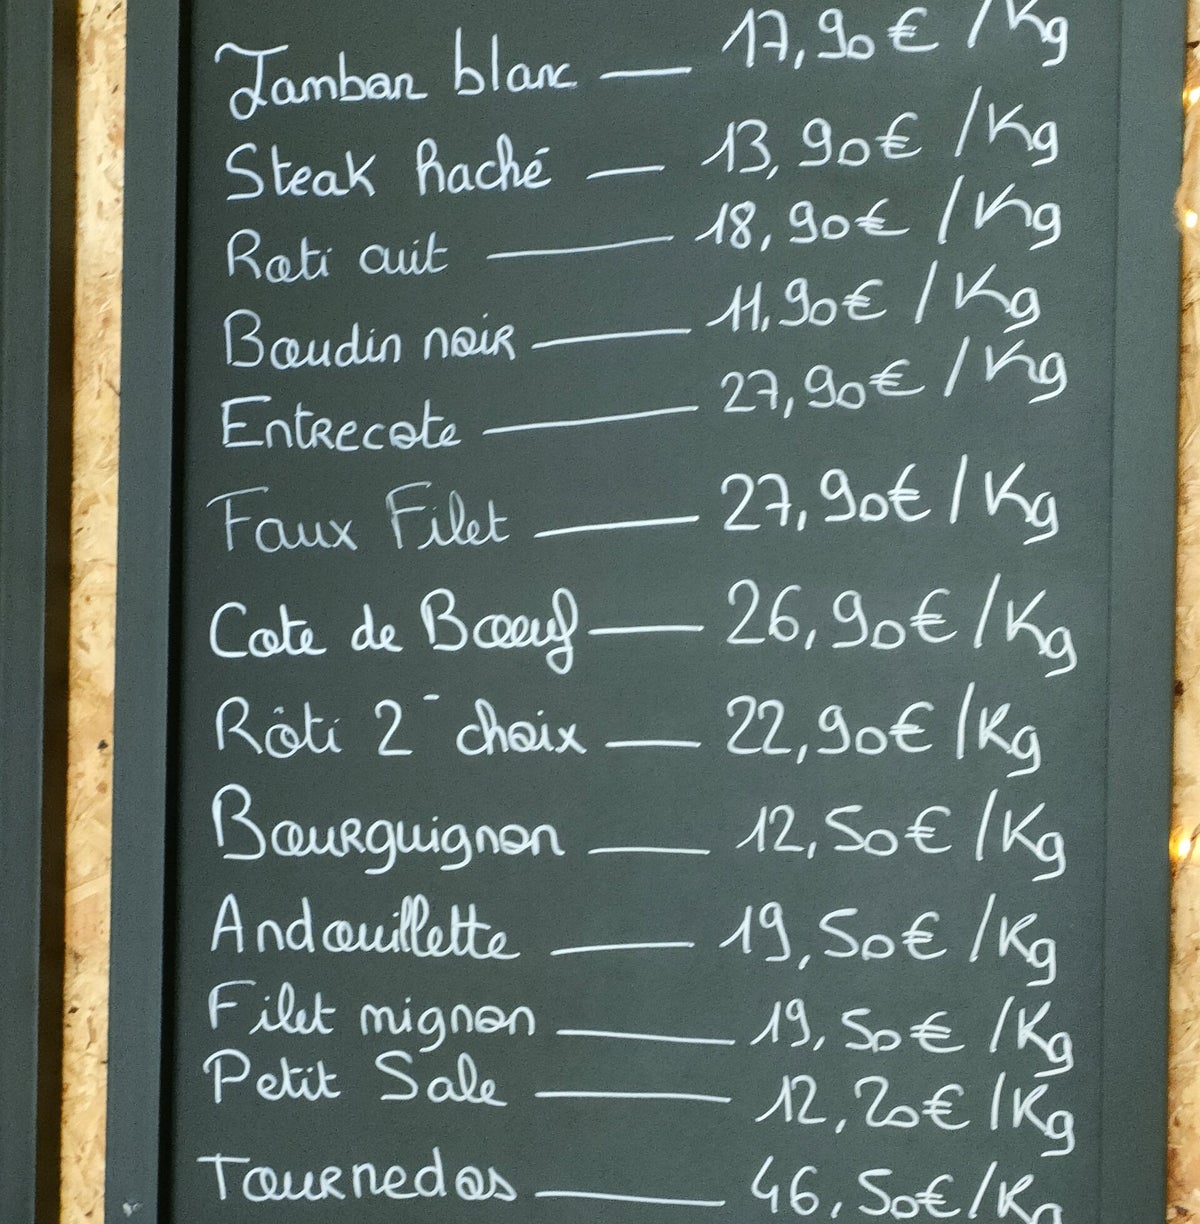 Jambon blanc — 17,90€ /Kg
Steak haché — 13,90€ /Kg
Roti cuit — 18,90€ /Kg
Boudin noir — 11,90€ /Kg
Entrecote — 27,90€ /Kg
Faux Filet — 27,90€ /Kg
Cote de Boeuf — 26,90€ /Kg
Rôti 2 - choix — 22,90€ /Kg
Bourguignon — 12,50€ /Kg
Andouillette — 19,50€ /Kg
Filet mignon — 19,50€ /Kg
Petit Sale — 12,20€ /Kg
Tournedos — 46,50€ /Kg